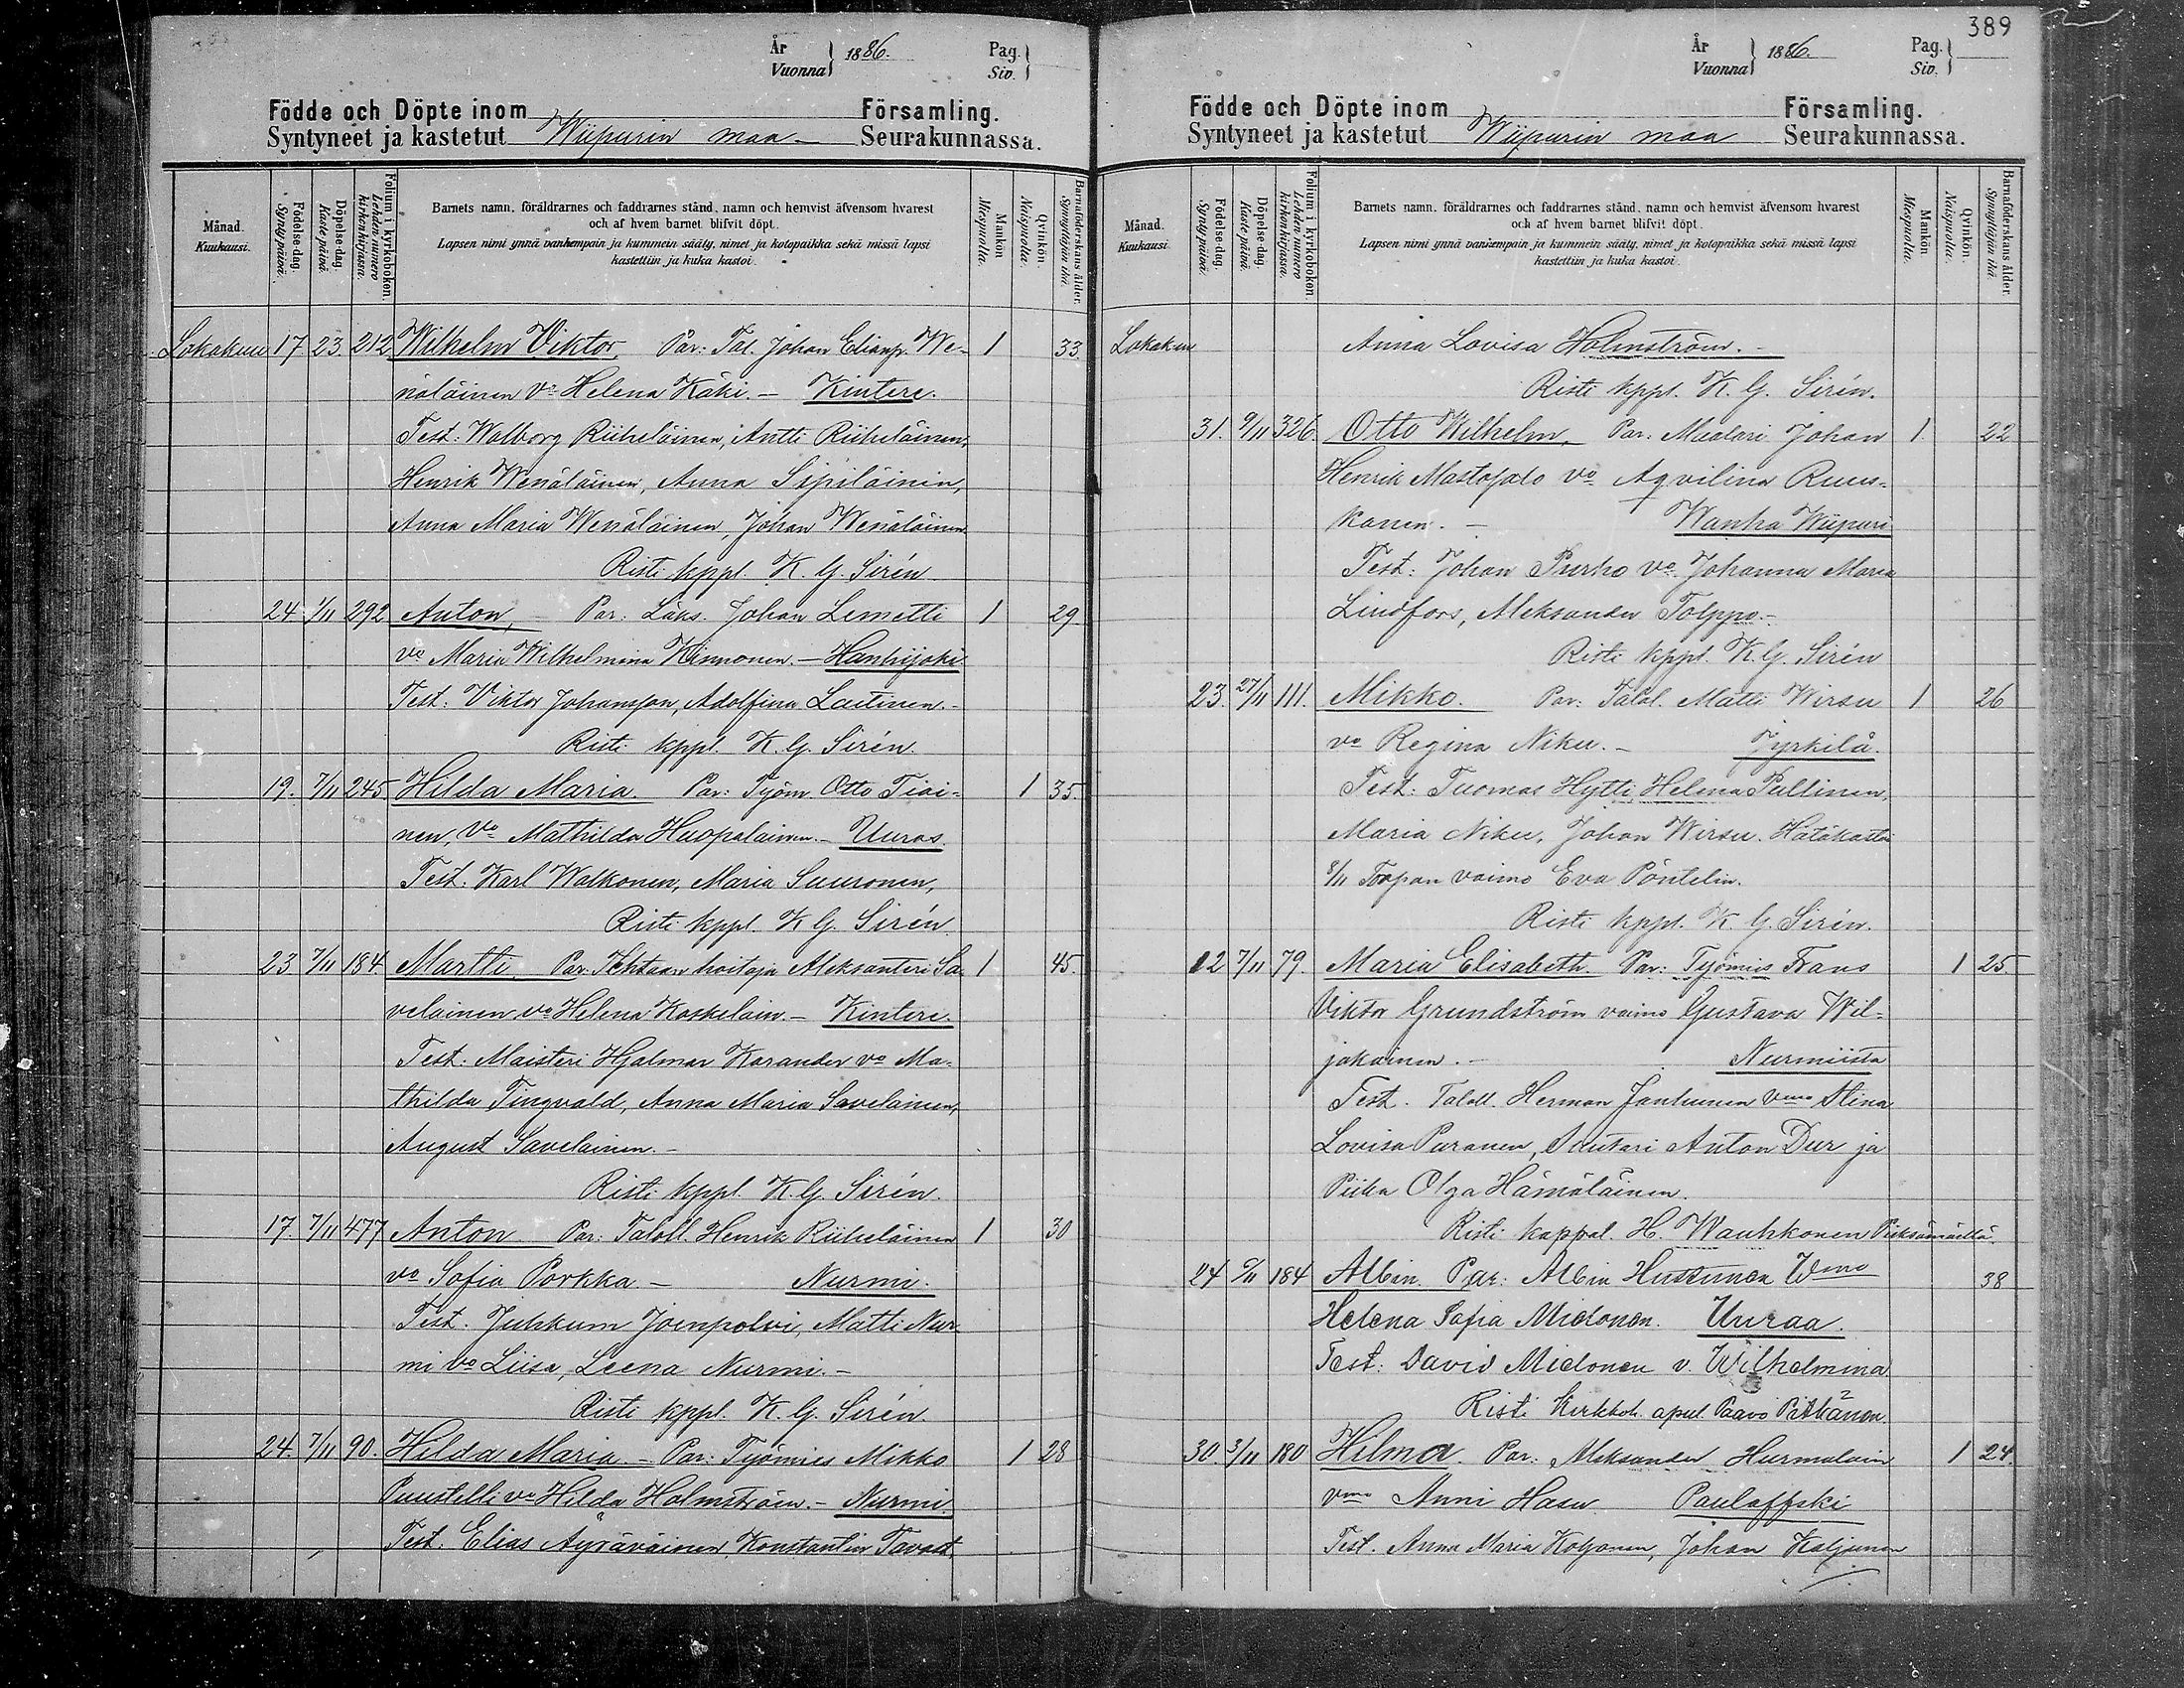 År
Vuonna } 1886.
Pag.
Siv. }
Födde och Döpte inom Församling.
Syntyneet ja kastetut Wiipurin maa – Seurakunnassa.
Månad.
Kuukausi.
Födelse-dag.
Syntypäivä.
Döpelse-dag.
Kaste-päivä.
Folium i kyrkoboken.
Lehden numero
kirkonkirjassa.
Barnets namn, föräldrarnes och faddrarnes stånd, namn och hemvist äfvensom hvarest
och af hvem barnet blifvit döpt.
Lapsen nimi ynnä vanhempain ja kummein sääty, nimet ja kotopaikka sekä missä lapsi
kastettiin ja kuka kastoi.
Mankön.
Miespuolia.
Qvinkön.
Naispuolia.
Barnaföderskans ålder.
Synnyttäjän ikä.
Lokakuu 17 23. 212 Wilhelm Viktor, Par: Tal. Johan Eliaanp. We- 1 33.
näläinen vo Helena Käki. – Kintere.
Test: Walborg Riiheläinen, Antti Riiheläinen,
Henrik Wenäläinen, Anna Sipiläinin,
Anna Maria Wenäläinen, Johan Wenäläinen
Risti kppl. K. G. Sirén
24 1/11 292 Anton, Par: Läks. Johan Lemetti 1 29
vo Maria Wilhelmina Kinnonen. – Hanhijoki
Test: Viktor Johansson, Adolfina Laitinen. –
Risti kppl. K. G. Sirén.
19. 7/11 245. Hilda Maria. Par: Työm. Otto Tiai- 1 35.
nen, Vo Mathilda Huopalainen. – Uuras.
Test. Karl Walkonen, Maria Suuronen,
Risti kppl. K G. Sirén
23 7/11 184 Martti. Par. Tehtaan hoitaja Aleksanteri Sa 1 45.
velainen vo Helena Koskelain. – Kintere.
Test: Maisteri Hjalmar Karander vo Ma-
thilda Tingvald, Anna Maria Savelainen,
August Savelainen. –
Risti kppl. K. G. Sirén.
17. 7/11 477 Anton Par: Taloll. Henrik Riiheläinen 1 30
vo Sofia Porkka – Nurmi.
Test. Juhkum Joenpolvi, Matti Nur-
mi vo Liisa, Leena Nurmi. –
Risti kppl. K. G. Sirén.
24. 7/11 90. Hilda Maria. – Par: Työmies Mikko 1 28
Puustelli vo Hilda Holmström. – Nurmi.
Test. Elias Äyräväinen, Konstantin Tavast,
389
År
Vuonna } 1886.
Pag.
Siv. }
Födde och Döpte inom Församling.
Syntyneet ja kastetut Wiipurin maa Seurakunnassa.
Månad.
Kuukausi.
Födelse-dag.
Syntypäivä.
Döpelse-dag.
Kaste-päivä.
Folium i kyrkoboken.
Lehden numero
kirkonkirjassa.
Barnets namn, föräldrarnes och faddrarnes stånd, namn och hemvist äfvensom hvarest
och af hvem barnet blifvit döpt.
Lapsen nimi ynnä vanhempain ja kummein sääty, nimet ja kotopaikka sekä missä lapsi
kastettiin ja kuka kastoi.
Mankön.
Miespuolia.
Qvinkön.
Naispuolia.
Barnaföderskans ålder.
Synnyttäjän ikä.
Lokakuu Anna Lovisa Holmström. –
Risti kppl. K. G. Sirén.
31. 9/11 326. Otto Wilhelm, Par. Maalari Johan 1. 22
Henrik Mastopalo vo Aqvilina Ruus-
kanen. – Wanha Wiipuri
Test: Johan Purho vo Johanna Maria
Lindfors, Aleksander Tolppo. –
Risti kppl. K. G. Sirén
23. 27/11 111. Mikko. Par: Talol. Matti Wirsu 1 26
vo Regina Niku. – Jyrkilä.
Test: Tuomas Hytti Helena Pullinen,
Maria Niku, Johan Wirsu. Hätäkasti
8/11 Taapan vaimo Eva Pöntelin.
Risti kppl. K. G. Sirén.
12 7/11 79. Maria Elisabeth. Par: Työmies Frans 1 25
Viktor Grundström vaimo Gustava Wil-
jakainen. – Nurmiista
Test. Taloll. Herman Janhunen Vmo Stina
Lovisa Paranen, Suutari Anton Dur ja
Piika Olga Hämäläinen.
Risti kappal. H. Wauhkonen Pieksämäellä.
24 184 Albin. Par: Albin Husunen Wmo 38
Helena Sofia Mielonen. Uuraa.
Test: David Mielonen v. Wilhelmina
Risti Kirkkoh. apul. Paavo Pitkänen
30. 3/11 180 Hilma. Par: Aleksander Hurmalain 1 24.
vmo Anni Hasu Paulaffski
Test. Anna Maria Koljonen, Johan Koljonen